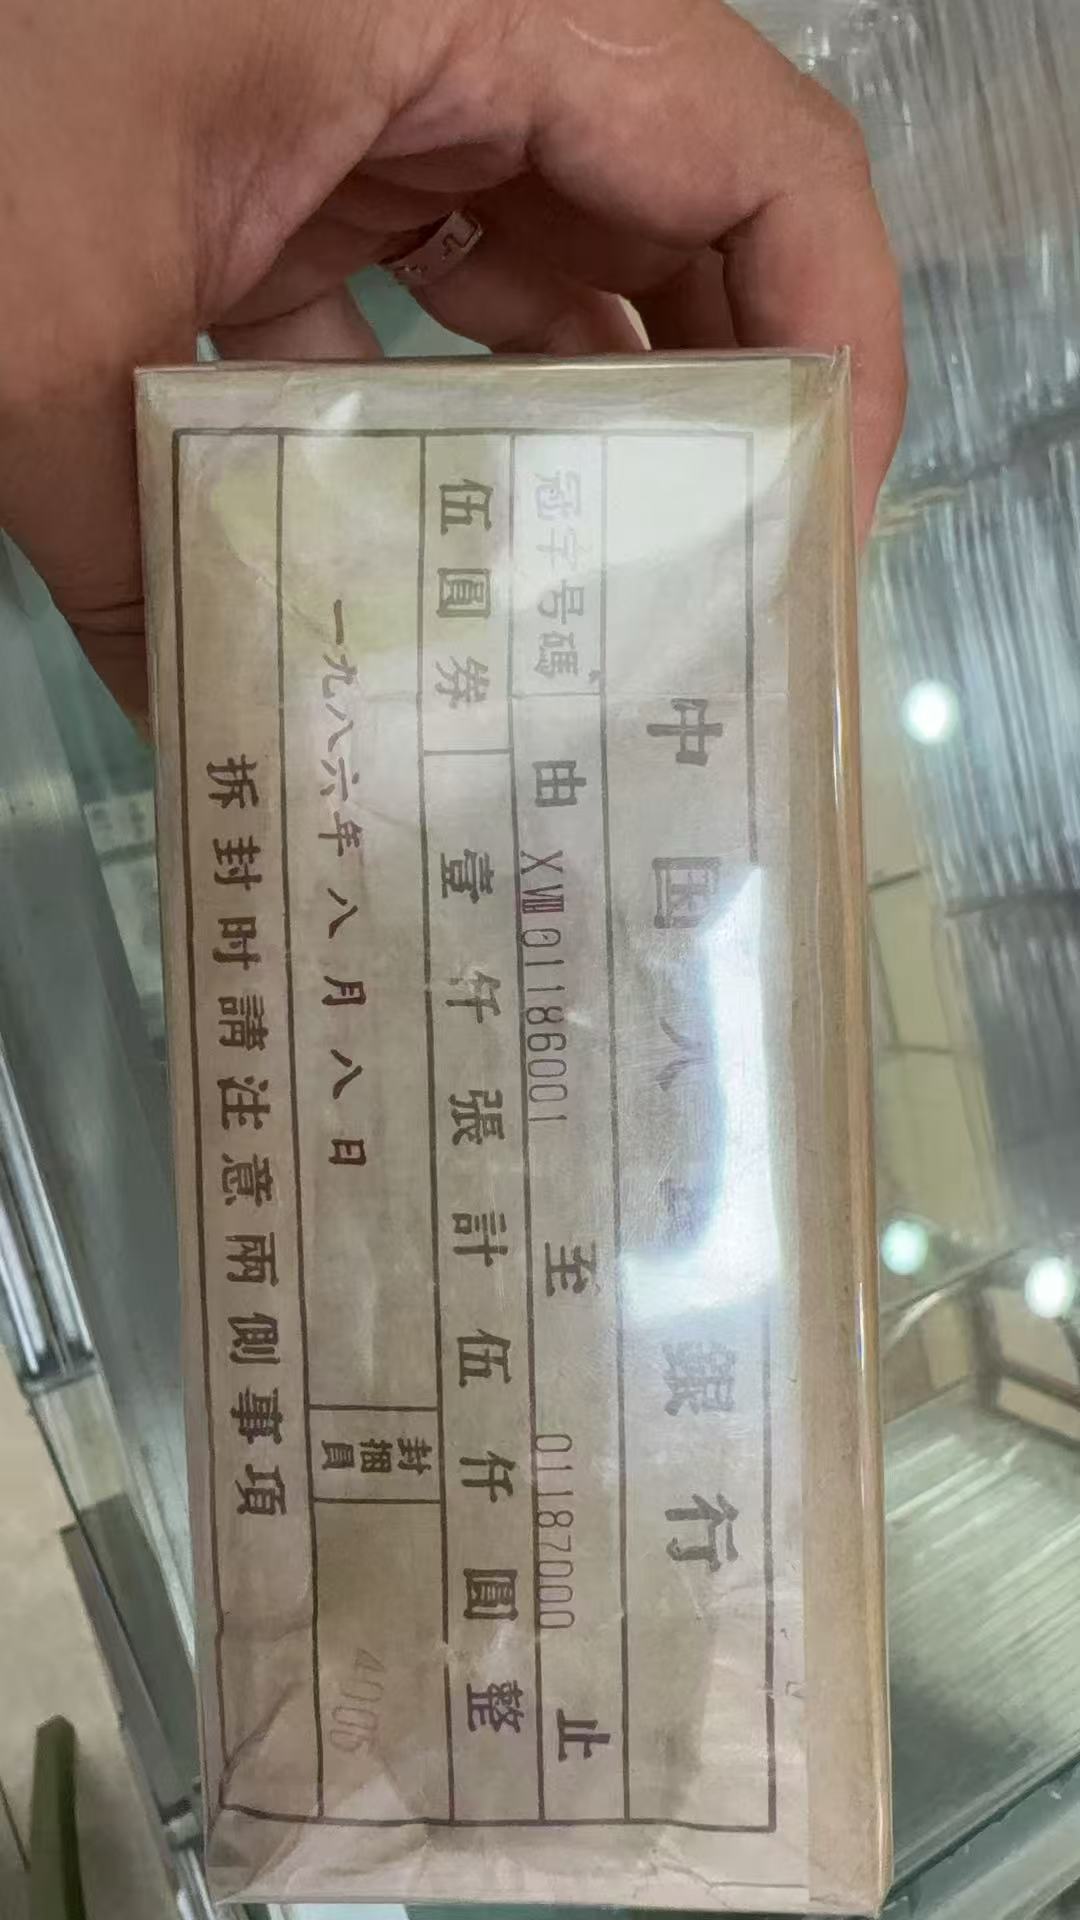 中国人民銀行
冠字号碼 由 XⅧ01186001 至 01187000 止
伍圓券 壹仟張計伍仟圓整
一九八六年八月八日 封捆員 4006
拆封时請注意兩側事項